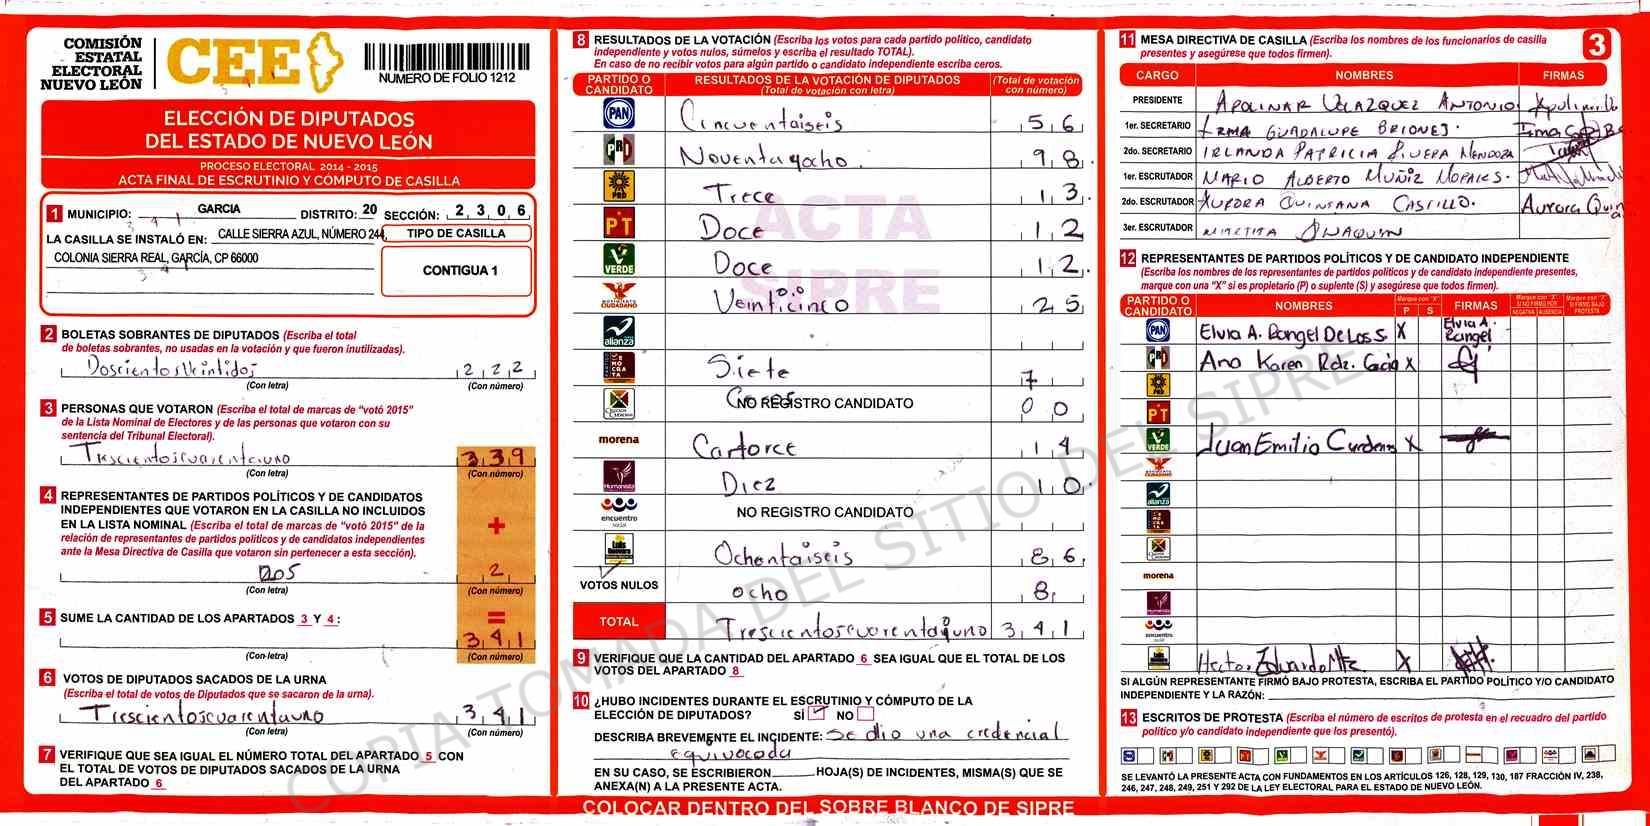 COMISIÓN
ESTATAL
ELECTORAL
NUEVO LEÓN
CEE
NUMERO DE FOLIO 1212
ELECCIÓN DE DIPUTADOS
DEL ESTADO DE NUEVO LEÓN
PROCESO ELECTORAL 2014 - 2015
ACTA FINAL DE ESCRUTINIO Y CÓMPUTO DE CASILLA
1 MUNICIPIO: GARCIA DISTRITO: 20 SECCIÓN: 2 3 0 6
LA CASILLA SE INSTALÓ EN: CALLE SIERRA AZUL, NÚMERO 244,
COLONIA SIERRA REAL, GARCÍA, CP 66000
TIPO DE CASILLA
CONTIGUA 1
2 BOLETAS SOBRANTES DE DIPUTADOS (Escriba el total
de boletas sobrantes, no usadas en la votación y que fueron inutilizadas).
Doscientos Veintidos 2 2 2
(Con letra) (Con número)
3 PERSONAS QUE VOTARON (Escriba el total de marcas de "votó 2015"
de la Lista Nominal de Electores y de las personas que votaron con su
sentencia del Tribunal Electoral).
Trescientoscuarentauno 3 3 9
(Con letra) (Con número)
4 REPRESENTANTES DE PARTIDOS POLÍTICOS Y DE CANDIDATOS
INDEPENDIENTES QUE VOTARON EN LA CASILLA NO INCLUIDOS
EN LA LISTA NOMINAL (Escriba el total de marcas de "votó 2015" de la
relación de representantes de partidos políticos y de candidatos independientes
ante la Mesa Directiva de Casilla que votaron sin pertenecer a esta sección).
+
Dos 2
(Con letra) (Con número)
5 SUME LA CANTIDAD DE LOS APARTADOS 3 Y 4: =
3 4 1
(Con letra) (Con número)
6 VOTOS DE DIPUTADOS SACADOS DE LA URNA
(Escriba el total de votos de Diputados que se sacaron de la urna).
Trescientoscuarentauno 3 4 1
(Con letra) (Con número)
7 VERIFIQUE QUE SEA IGUAL EL NÚMERO TOTAL DEL APARTADO 5 CON
EL TOTAL DE VOTOS DE DIPUTADOS SACADOS DE LA URNA
DEL APARTADO 6
8 RESULTADOS DE LA VOTACIÓN (Escriba los votos para cada partido político, candidato
independiente y votos nulos, súmelos y escriba el resultado TOTAL).
En caso de no recibir votos para algún partido o candidato independiente escriba ceros.
PARTIDO O CANDIDATO RESULTADOS DE LA VOTACIÓN DE DIPUTADOS (Total de votación con letra) (Total de votación con número)
PAN Cincuentaiseis 5 6
PRI Noventayocho. 9 8.
PRD Trece 1 3.
PT Doce 1 2
VERDE Doce 1 2.
MOVIMIENTO CIUDADANO Veinticinco 2 5
alianza
DEMOCRATA Siete 7
Ceros NO REGISTRO CANDIDATO 0 0
morena Cartorce 1 4
Humanista Diez 1 0.
encuentro social NO REGISTRO CANDIDATO
Luis Guevara Ochentaiseis 8 6.
VOTOS NULOS ocho 8.
TOTAL Trescientoscuarentaiuno 3 4 1
9 VERIFIQUE QUE LA CANTIDAD DEL APARTADO 6 SEA IGUAL QUE EL TOTAL DE LOS
VOTOS DEL APARTADO 8
10 ¿HUBO INCIDENTES DURANTE EL ESCRUTINIO Y CÓMPUTO DE LA
ELECCIÓN DE DIPUTADOS? SÍ NO
DESCRIBA BREVEMENTE EL INCIDENTE: Se dio una credencial
equivocada
EN SU CASO, SE ESCRIBIERON HOJA(S) DE INCIDENTES, MISMA(S) QUE SE
ANEXA(N) A LA PRESENTE ACTA.
COLOCAR DENTRO DEL SOBRE BLANCO DE SIPRE
ACTA
SIPRE
COPIA TOMADA DEL SITIO DEL SIPRE
11 MESA DIRECTIVA DE CASILLA (Escriba los nombres de los funcionarios de casilla
presentes y asegúrese que todos firmen).
3
CARGO NOMBRES FIRMAS
PRESIDENTE APOLINAR VELAZQUEZ ANTONIO
1er. SECRETARIO IRMA GUADALUPE BRIONES.
2do. SECRETARIO IRLANDA PATRICIA RIVERA MENDOZA
1er. ESCRUTADOR MARIO ALBERTO MUÑIZ MORALES.
2do. ESCRUTADOR AURORA QUINTANA CASTILLO. Aurora Quin
3er. ESCRUTADOR
12 REPRESENTANTES DE PARTIDOS POLÍTICOS Y DE CANDIDATO INDEPENDIENTE
(Escriba los nombres de los representantes de partidos políticos y de candidato independiente presentes,
marque con una "X" si es propietario (P) o suplente (S) y asegúrese que todos firmen).
PARTIDO O CANDIDATO NOMBRES Marque con "X" P S FIRMAS Marque con "X" SI NO FIRMÓ POR NEGATIVA AUSENCIA Marque con "X" SI FIRMÓ BAJO PROTESTA
PAN Elvia A. Rangel De Los S. X Elvia A. Rangel
PRI Ana Karen Rdz. Garcia X
PRD
PT
VERDE Juan Emilio Cardenas X
alianza
morena
encuentro social
Hector Eduardo Mtz X
SI ALGÚN REPRESENTANTE FIRMÓ BAJO PROTESTA, ESCRIBA EL PARTIDO POLÍTICO Y/O CANDIDATO
INDEPENDIENTE Y LA RAZÓN:
13 ESCRITOS DE PROTESTA (Escriba el número de escritos de protesta en el recuadro del partido
político y/o candidato independiente que los presentó).
SE LEVANTÓ LA PRESENTE ACTA CON FUNDAMENTOS EN LOS ARTÍCULOS 126, 128, 129, 130, 187 FRACCIÓN IV, 238,
246, 247, 248, 249, 251 Y 292 DE LA LEY ELECTORAL PARA EL ESTADO DE NUEVO LEÓN.